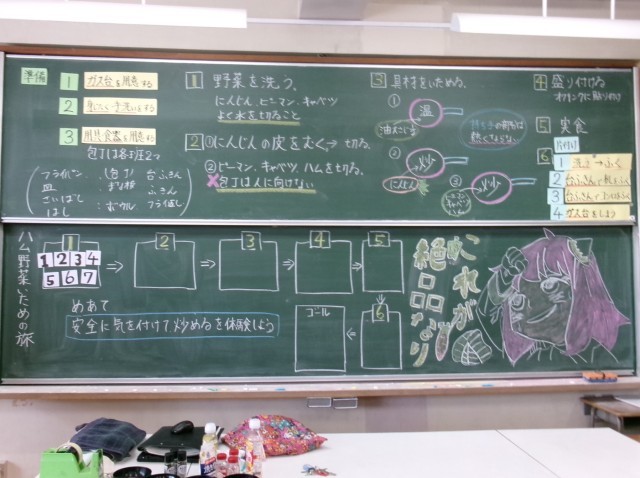 準備
1 ガス台を用意する
2 身じたく・手洗いをする
3 用具・食器を用意する
包丁は各班2つ
フライパン
皿
さいばし
はし
包丁
まな板
ボウル
台ふきん
ふきん
フライ返し
1 野菜を洗う。
にんじん、ピーマン、キャベツ
よく水を切ること
2 ①にんじんの皮をむく→切る。
②ピーマン、キャベツ、ハムを切る。
×包丁は人に向けない
3 具材をいためる。
①
温
油大さじ
②
炒
にんじん
③
炒
4 盛り付ける
5 実食
6 片付け
1 洗う→ふく
2 台ふきんで机をふく
4 ガス台をしまう
ハム野菜いための旅
1
1 2 3 4
5 6 7
⇒
2
⇒
3
⇒
4
⇒
5
6
ゴール
めあて
安全に気を付けて炒めるを体験しよう
これが
絶